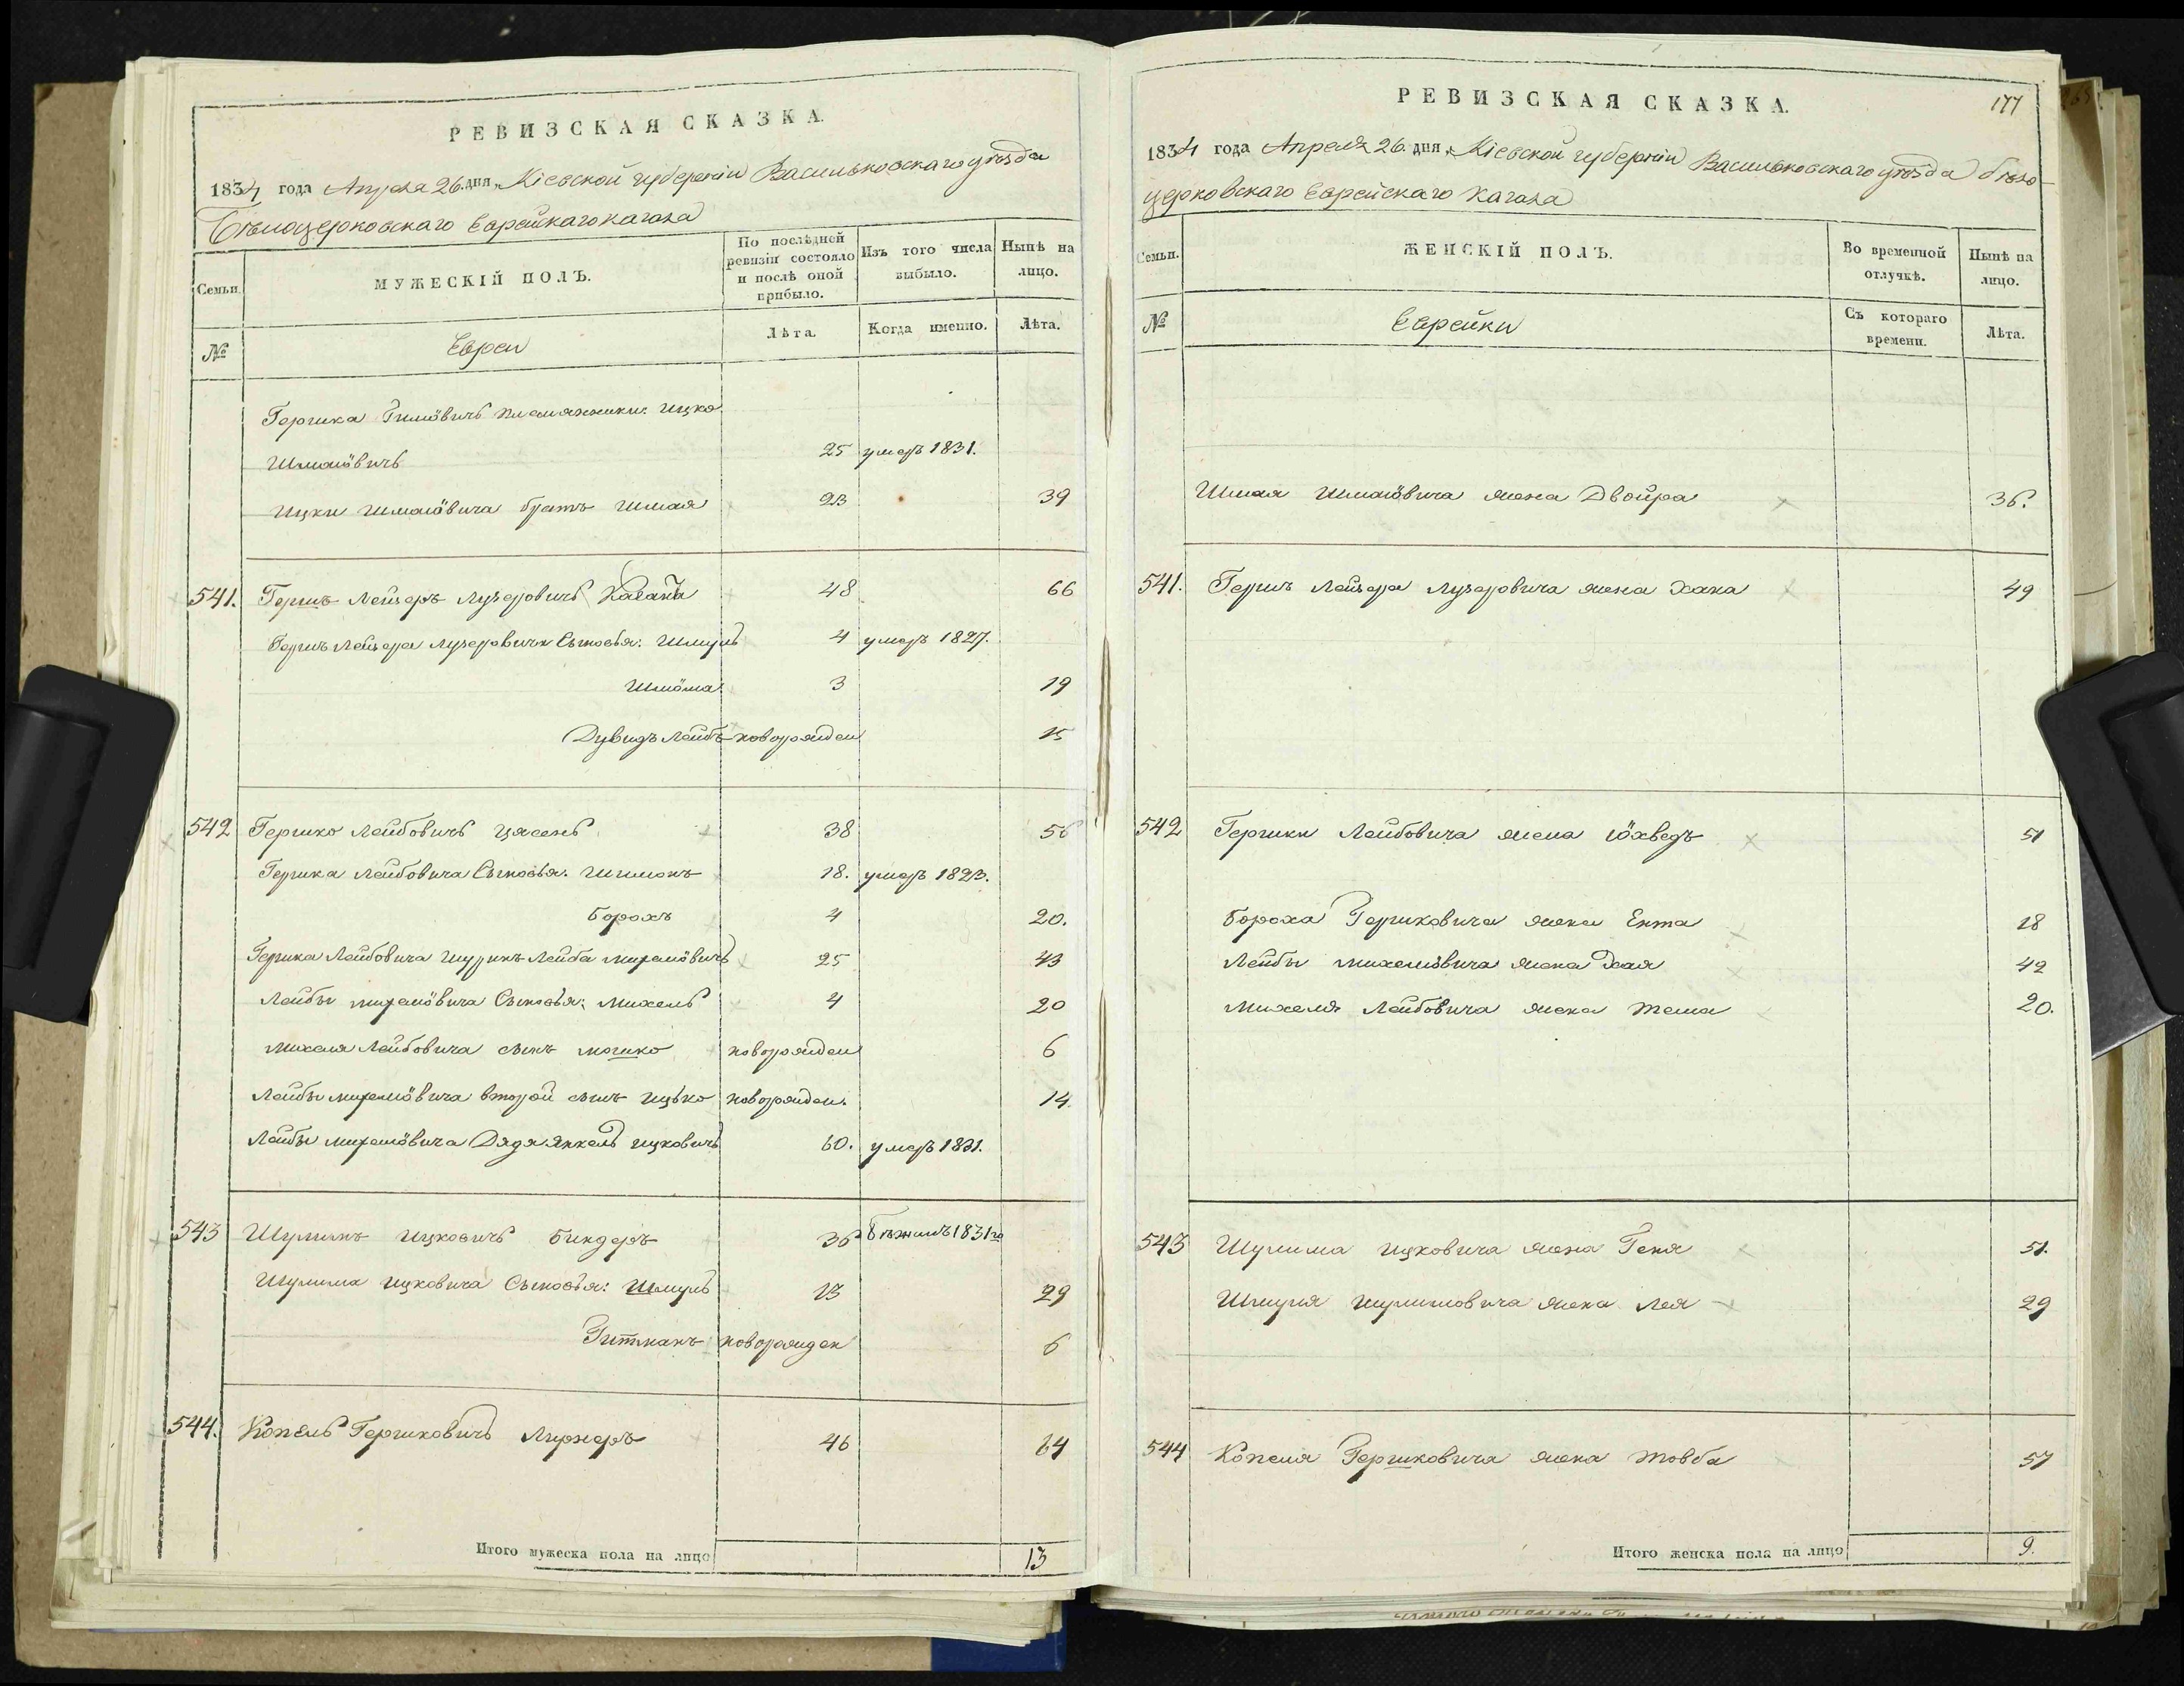 РЕВИЗСКАЯ СКАЗКА.
1834 года Апреля 26. дня, Кіевской губерніи Васильковскаго уѣзда
Бѣлоцерковскаго Еврейскаго кагала
Семьи.
МУЖЕСКІЙ ПОЛЪ.
По послѣдней ревизіи состояло и послѣ оной прибыло.
Изъ того числа выбыло.
Нынѣ на лицо.
№
Евреи
Лѣта.
Когда именно.
Лѣта.
Гершка племянники: Ицко
Шмаіовичъ 25 умеръ 1831.
Ицки Шмаіовича братъ Шмая 23 39
541. Гершъ Лейзеръ Лузеровичъ 48 66
Гершъ Лейзера Лузеровича Сыновья: Шмуль 4 умеръ 1827.
Шліома 3 19
Дувидъ Лейбъ новорожден 15
542 Гершко Лейбовичъ 38 56
Гершка Лейбовича Сыновья: Шимонъ 18. умеръ 1823.
Борохъ 4 20.
Гершка Лейбовича Шуринъ Лейба Михелiовичъ 25 43
Лейбы Михелiовича Сыновья: Михель 4 20
Михеля Лейбовича сынъ Мошко новорожден 6
Лейбы Михелiовича второй сынъ Ицько новорожден. 14.
Лейбы Михелiовича Дядя Янкель Ицковичъ 60. умеръ 1831.
543 Шулимъ Ицковичъ Биндеръ 36 Бѣжалъ 1831го
Шулима Ицковича Сыновья: Шмуль 13 29
Гитманъ новорожден 6
544. Копель Гершковичъ Лирнеръ 46 64
Итого мужеска пола на лицо 13
177
РЕВИЗСКАЯ СКАЗКА.
1834 года Апреля 26. дня, Кіевской губерніи Васильковскаго уѣзда бѣло-
церковскаго Еврейскаго Кагала
Семьи.
ЖЕНСКІЙ ПОЛЪ.
Во временной отлучкѣ.
Нынѣ на лицо.
№
Еврейки
Съ котораго времени.
Лѣта.
Шмая Шмаіовича жена Двойра 36.
541. Гершъ Лейзера Лузеровича жена Хана 49
542 Гершки Лейбовича жена Іохведъ 51
Бороха Гершковича жена Ента 18
Лейбы Михелiовича жена Хая 42
Михеля Лейбовича жена 20.
543 Шулима Ицковича жена Геня 51.
Шмуля Шулимовича жена Лея 29
544 Копеля Гершковича жена Товба 57
Итого женска пола на лицо 9.